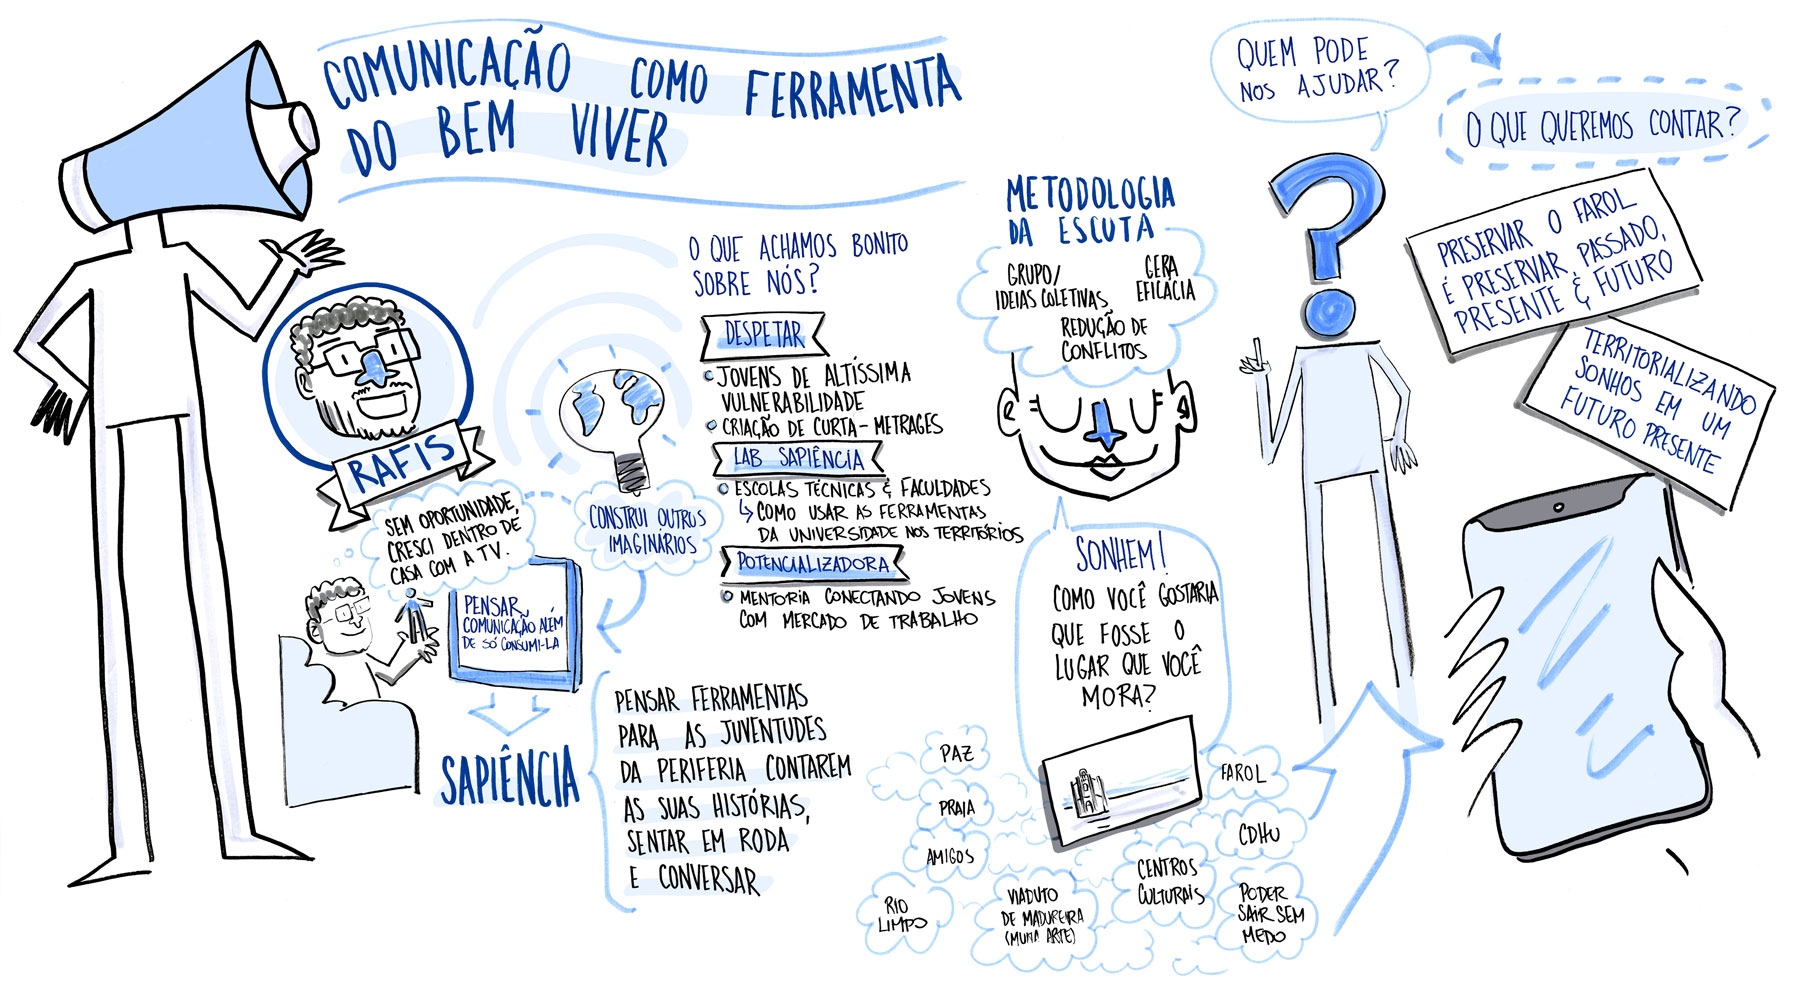 COMUNICAÇÃO COMO FERRAMENTA
DO BEM VIVER
RAFIS
SEM OPORTUNIDADE,
CRESCI DENTRO DE
CASA COM A TV.
PENSAR
COMUNICAÇÃO ALÉM
DE SÓ CONSUMI-LA
CONSTRUI OUTRUS
IMAGINÁRIOS
SAPIÊNCIA
PENSAR FERRAMENTAS
PARA AS JUVENTUDES
DA PERIFERIA CONTAREM
AS SUAS HISTÓRIAS,
SENTAR EM RODA
E CONVERSAR
O QUE ACHAMOS BONITO
SOBRE NÓS?
DESPETAR
JOVENS DE ALTÍSSIMA
VULNERABILIDADE
CRIAÇÃO DE CURTA-METRAGES
LAB SAPIÊNCIA
ESCOLAS TÉCNICAS & FACULDADES
↳ COMO USAR AS FERRAMENTAS
DA UNIVERSIDADE NOS TERRITÓRIOS
POTENCIALIZADORA
MENTORIA CONECTANDO JOVENS
COM MERCADO DE TRABALHO
METODOLOGIA
DA ESCUTA
GRUPO/
IDEIAS COLETIVAS
GERA
EFICÁCIA
REDUÇÃO DE
CONFLITOS
SONHEM!
COMO VOCÊ GOSTARIA
QUE FOSSE O
LUGAR QUE VOCÊ
MORA?
PAZ
PRAIA
AMIGOS
RIO
LIMPO
VIADUTO
DE MADUREIRA
(MUITA ARTE)
CENTROS
CULTURAIS
FAROL
CDHU
PODER
SAIR SEM
MEDO
QUEM PODE
NOS AJUDAR?
O QUE QUEREMOS CONTAR?
PRESERVAR O FAROL
É PRESERVAR PASSADO,
PRESENTE & FUTURO
TERRITORIALIZANDO
SONHOS EM UM
FUTURO PRESENTE